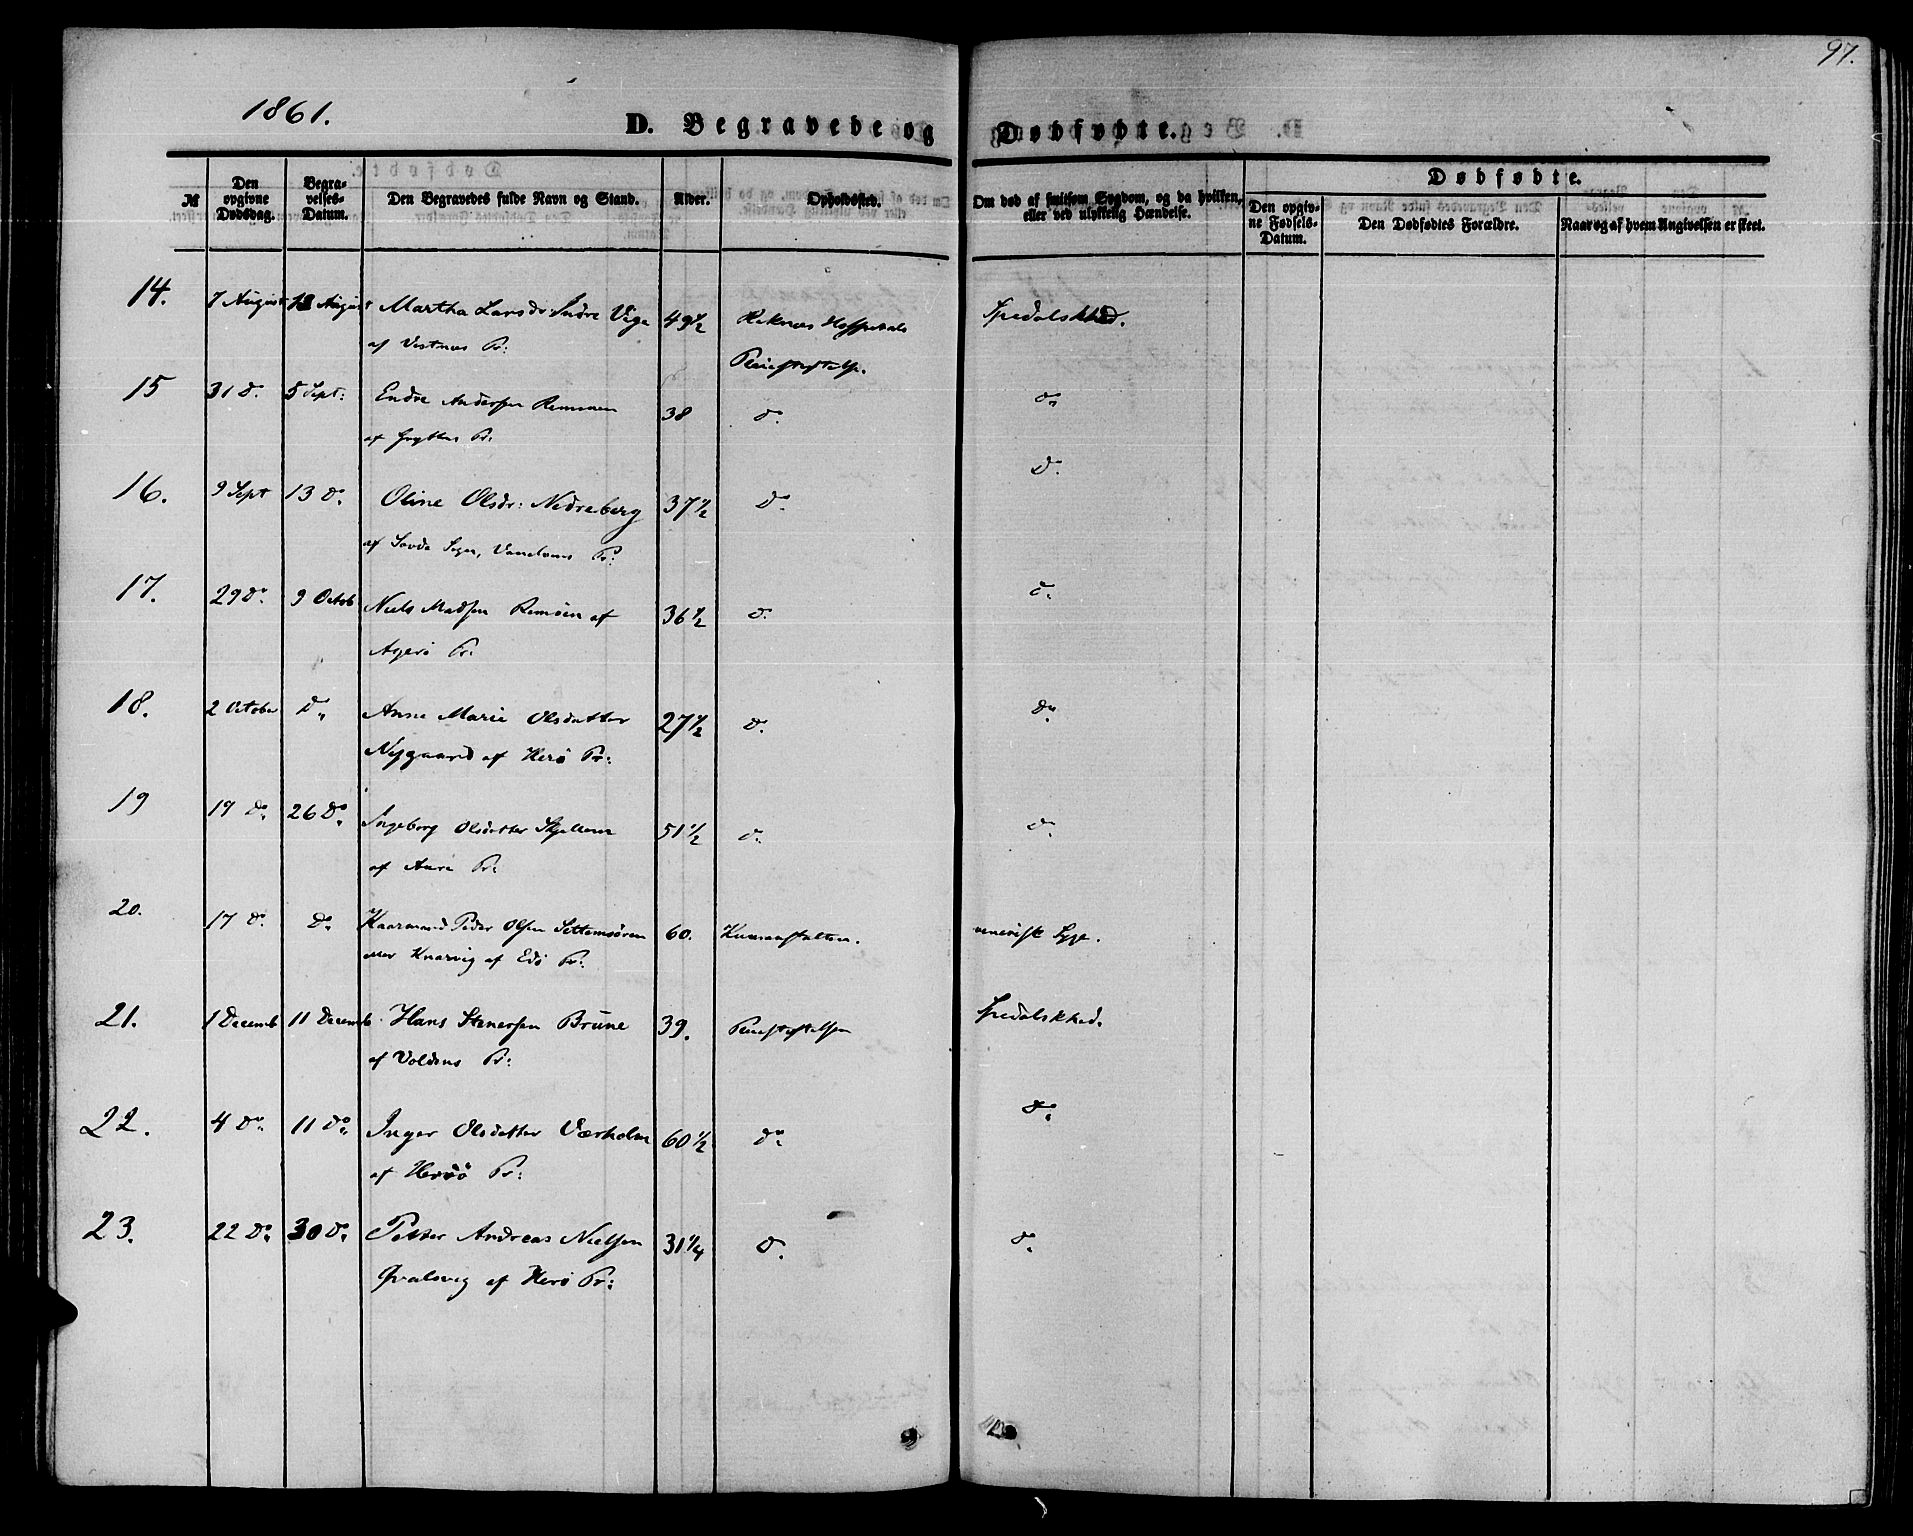 97.
1861.
D. Begravede og Dødfødte.
№
Den opgivne Dødsdag.
Begravelses-Datum.
Den Begravedes fulde Navn og Stand.
Alder.
Opholdssted.
Om død af smitsom Sygdom, og da hvilken, eller ved ulykkelig Hændelse.
Dødfødte.
Den opgivne Fødsels-Datum.
Den Dødfødtes Forældre.
Naar og af hvem Angivelsen er skeet.
14. 7 August August Martha Larsdr: Indre Vige 49½ Reknæs Hospitals Spedalskhed.
af Vestnes Pr: Pleiestiftelse.
15 31 do. 5 Sept: Endre Andersen 38 do. do.
af Grytten Pr:
16. 9 Sept 13 do. Oline Olsdr: Nedreberg 37½ do. do.
af Pr:
17. 29 do. 9 Octob Niels Madsen Remøen af 36½ do. do.
Agerø Pr:
18. 2 October do. Anne Marie Olsdatter 27½ do. do.
Nygaard af Herø Pr:
19 19 do. 26 do. Ingeborg Olsdatter 51½ do. do.
af Aure Pr:
20. 17 do. do. Peder Olsen Settemsøren 60. Kuranstalten. venerisk Syge.
Knarvig af Edø Pr:
21. 1 Decemb 11 Decemb Hans Stenersen Brune 39. Pleiestiftelsen Spedalskhed.
af Voldens Pr:
22. 4 do. 11 do. Inger Olsdatter Værholm 60½ do. do.
af Herø Pr:
23. 22 do. 30 do. Petter Andreas Nielsen 31¼ do. do.
Qvalsvig af Herø Pr: